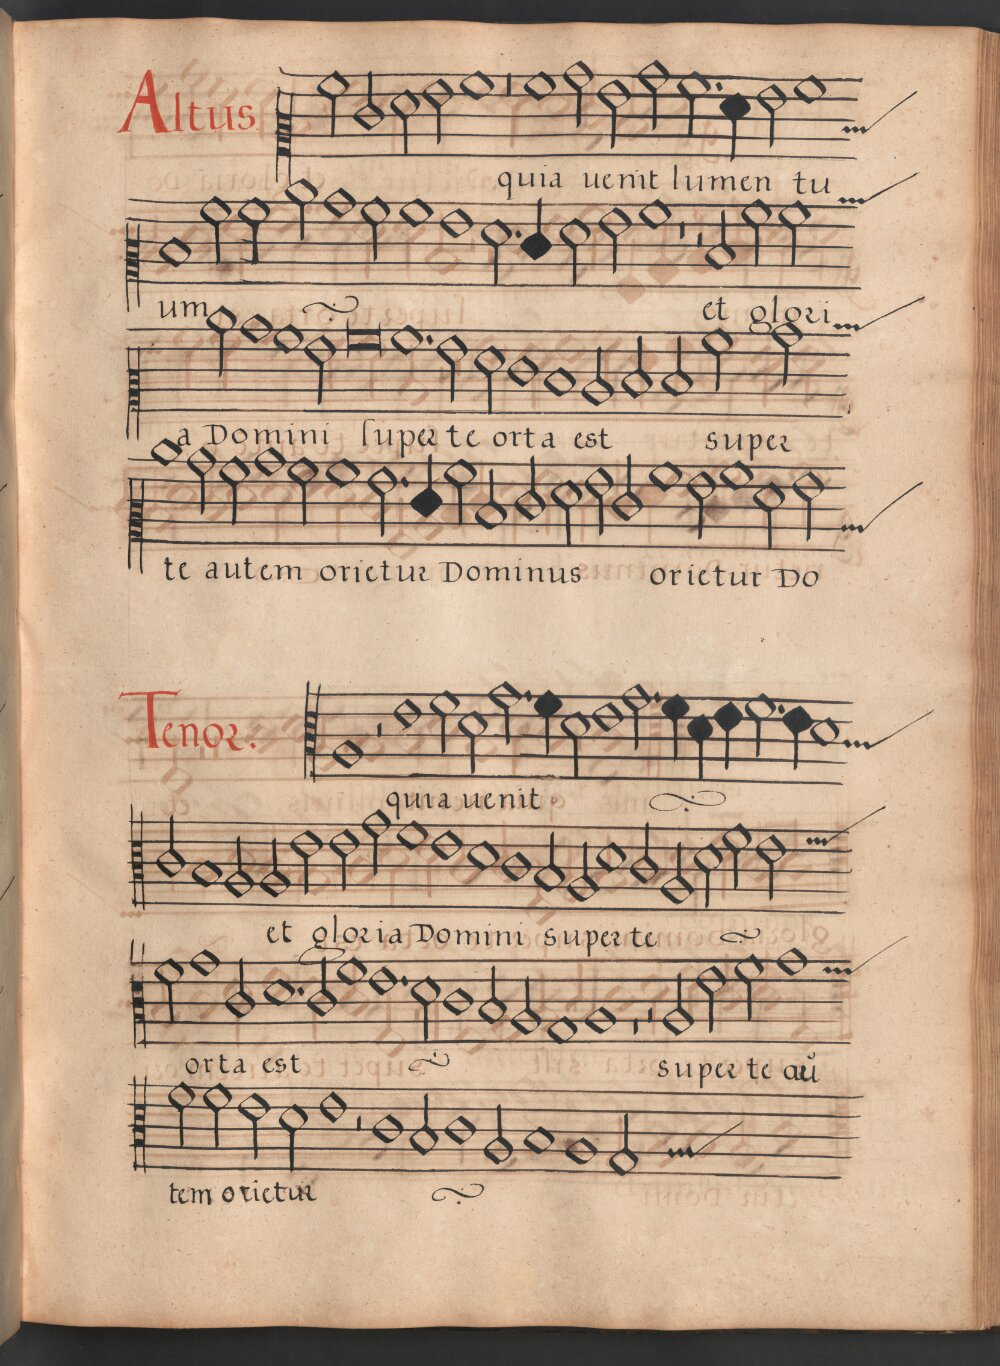 Altus
quia uenit lumen tu
um et glori
a Domini super te orta est super
te autem orietur Dominus orietur Do
Tenor.
quia uenit
et gloria Domini super te
orta est super te aũ
tem orietur